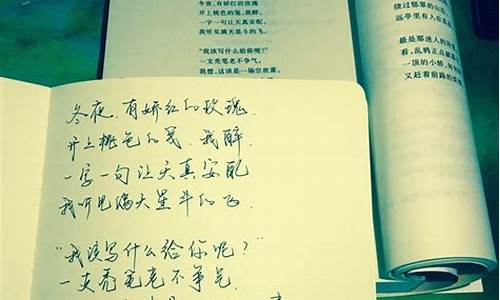 冬夜，有娇红的玫瑰
开上桃色的笺，我醉，
一字一句让天真安配，
我听见满天星斗的飞。
“我该写什么给你呢？”
一支秃笔老不争气，
我想，这该是一场空欢喜，
绕过郁翠的山
远亭里有人在
最是那迷人的
看，乱鸦正点破
一顶的小轿，
又赶着前路的
冬夜，有娇红的玫瑰，
开上桃色的笺，我醉
一字一句让天真安配
我听见满天星斗的飞.
“我该写什么给你呢？”
一支秃笔老不争气.